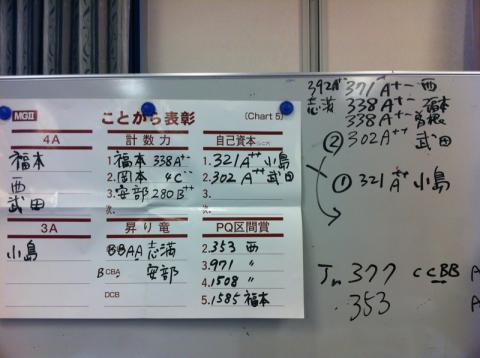 MGII ことがら表彰 (Chart 5)
4A
福本
西
武田
計数力
1. 福本 338A+-
2. 岡本 4C
3. 安部 280B++
次.
自己資本
1. 321A++ 小島
2. 302A++ 武田
3.
次.
3A
小島
昇り竜
BBAA 志満
BCBA 安部
DCB
PQ区間賞
2. 353 西
3. 971 〃
4. 1508 〃
5. 1585 福本
392A
志満
371A+- 西
338A+- 福本
338A+-
② 302A++ 武田
① 321A++ 小島
377 CCBB A
353 A